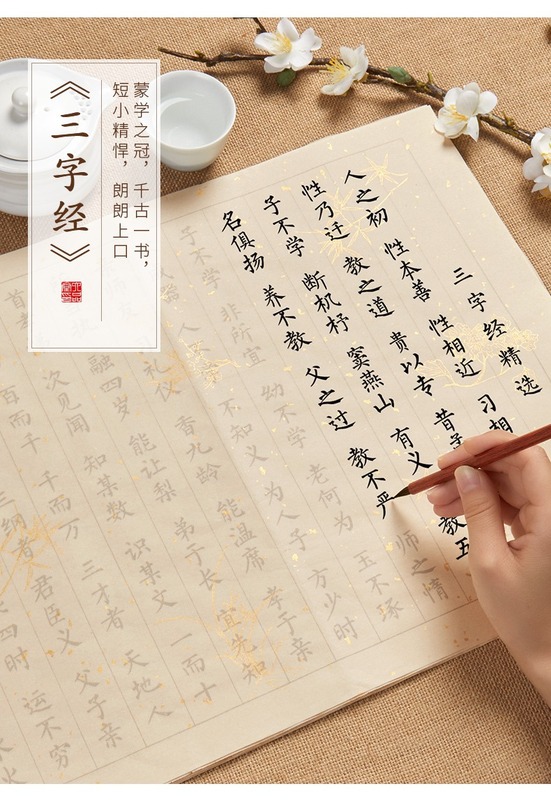 《三字经》
蒙学之冠，千古一书，
短小精悍，朗朗上口
三字经精选
人之初 性本善 性相近 习相
性乃迁 教之道 贵以专 昔
子不学 断机杼 窦燕山 有义 教五
名俱扬 养不教 父之过 教不严 师之惰
子不学 非所宜 幼不学 老何为 玉不琢
器 不知义 为人子 方少时
礼仪 香九龄 能温席 孝于亲
融四岁 能让梨 弟于长 宜先知
首孝 次见闻 知某数 识某文 一而十
百而千 千而万 三才者 天地人
三纲者 君臣义 父子亲
四时 运不穷
水火